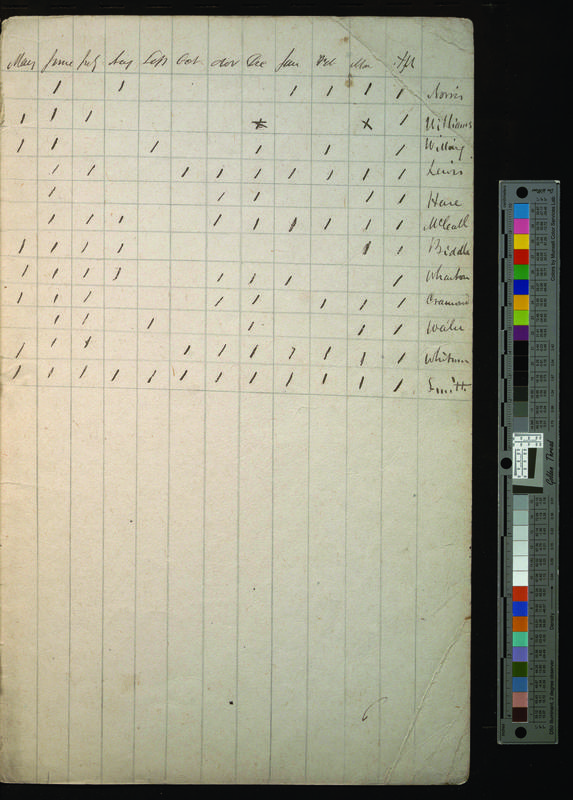 May June July Aug Sept Oct Nov Dec Jan Feb Mar Apl
/ / / / / / Norris
/ / / x x / Williams
/ / / / / / Willing
/ / / / / / / / / Lewis
/ / / / / Hare
/ / / / / / / / / McCall
/ / / / / / Biddle
/ / / / / / / / Wharton
/ / / / / / / / Cramond
/ / / / / /
/ / / / / / / / / / Whitman
/ / / / / / / / / / / / Smith
Golden Thread